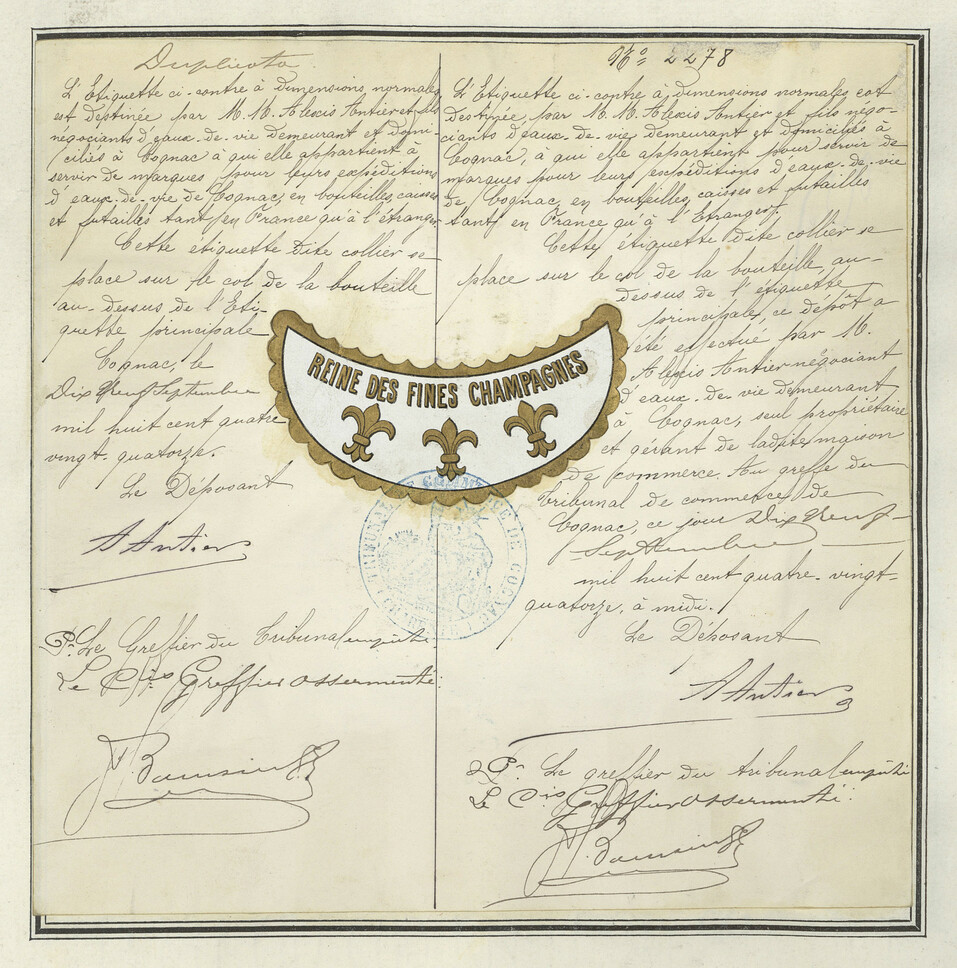 Duplicata
L'Etiquette ci-contre à dimensions normales
est destinée par M.M. Alexis Antier et fils
négociants d'eaux-de-vie demeurant et domi-
ciliés à Cognac à qui elle appartient à
servir de marques pour leurs expéditions
d'eaux-de-vie de Cognac en bouteilles, caisses
et futailles tant en France qu'à l'étranger.
Cette etiquette dite collier se
place sur le col de la bouteille
au-dessus de l'Eti-
quette principale
Cognac, le
Dix Neuf Septembre
mil huit cent quatre
vingt-quatorze.
Le Déposant
A Antier
Pr Le Greffier du Tribunal empêché
Le Cis Greffier assermenté:
No 2278
L'Etiquette ci-contre à dimensions normales est
destinée par M.M. Alexis Antier et fils négo-
ciants d'eaux-de-vie demeurant et domiciliés à
Cognac, à qui elle appartient pour servir de
marques pour leurs expéditions d'eaux-de-vie
de Cognac en bouteilles, caisses et futailles
tant en France qu'à l'Etranger.
Cette etiquette dite collier se
place sur le col de la bouteille au-
dessus de l'etiquette
principale, ce dépôt a
été effectué par M.
Alexis Antier négociant
d'eaux-de-vie demeurant
à Cognac, seul propriétaire
et gérant de ladite maison
de commerce. Au greffe du
Tribunal de commerce de
Cognac, ce jour Dix Neuf
Septembre
mil huit cent quatre-vingt-
quatorze, à midi.
Le Déposant
A Antier
Pr Le greffier du tribunal empêché
Le Cis Greffier assermenté:
REINE DES FINES CHAMPAGNES
TRIBUNAL DE COMMERCE DE COGNAC